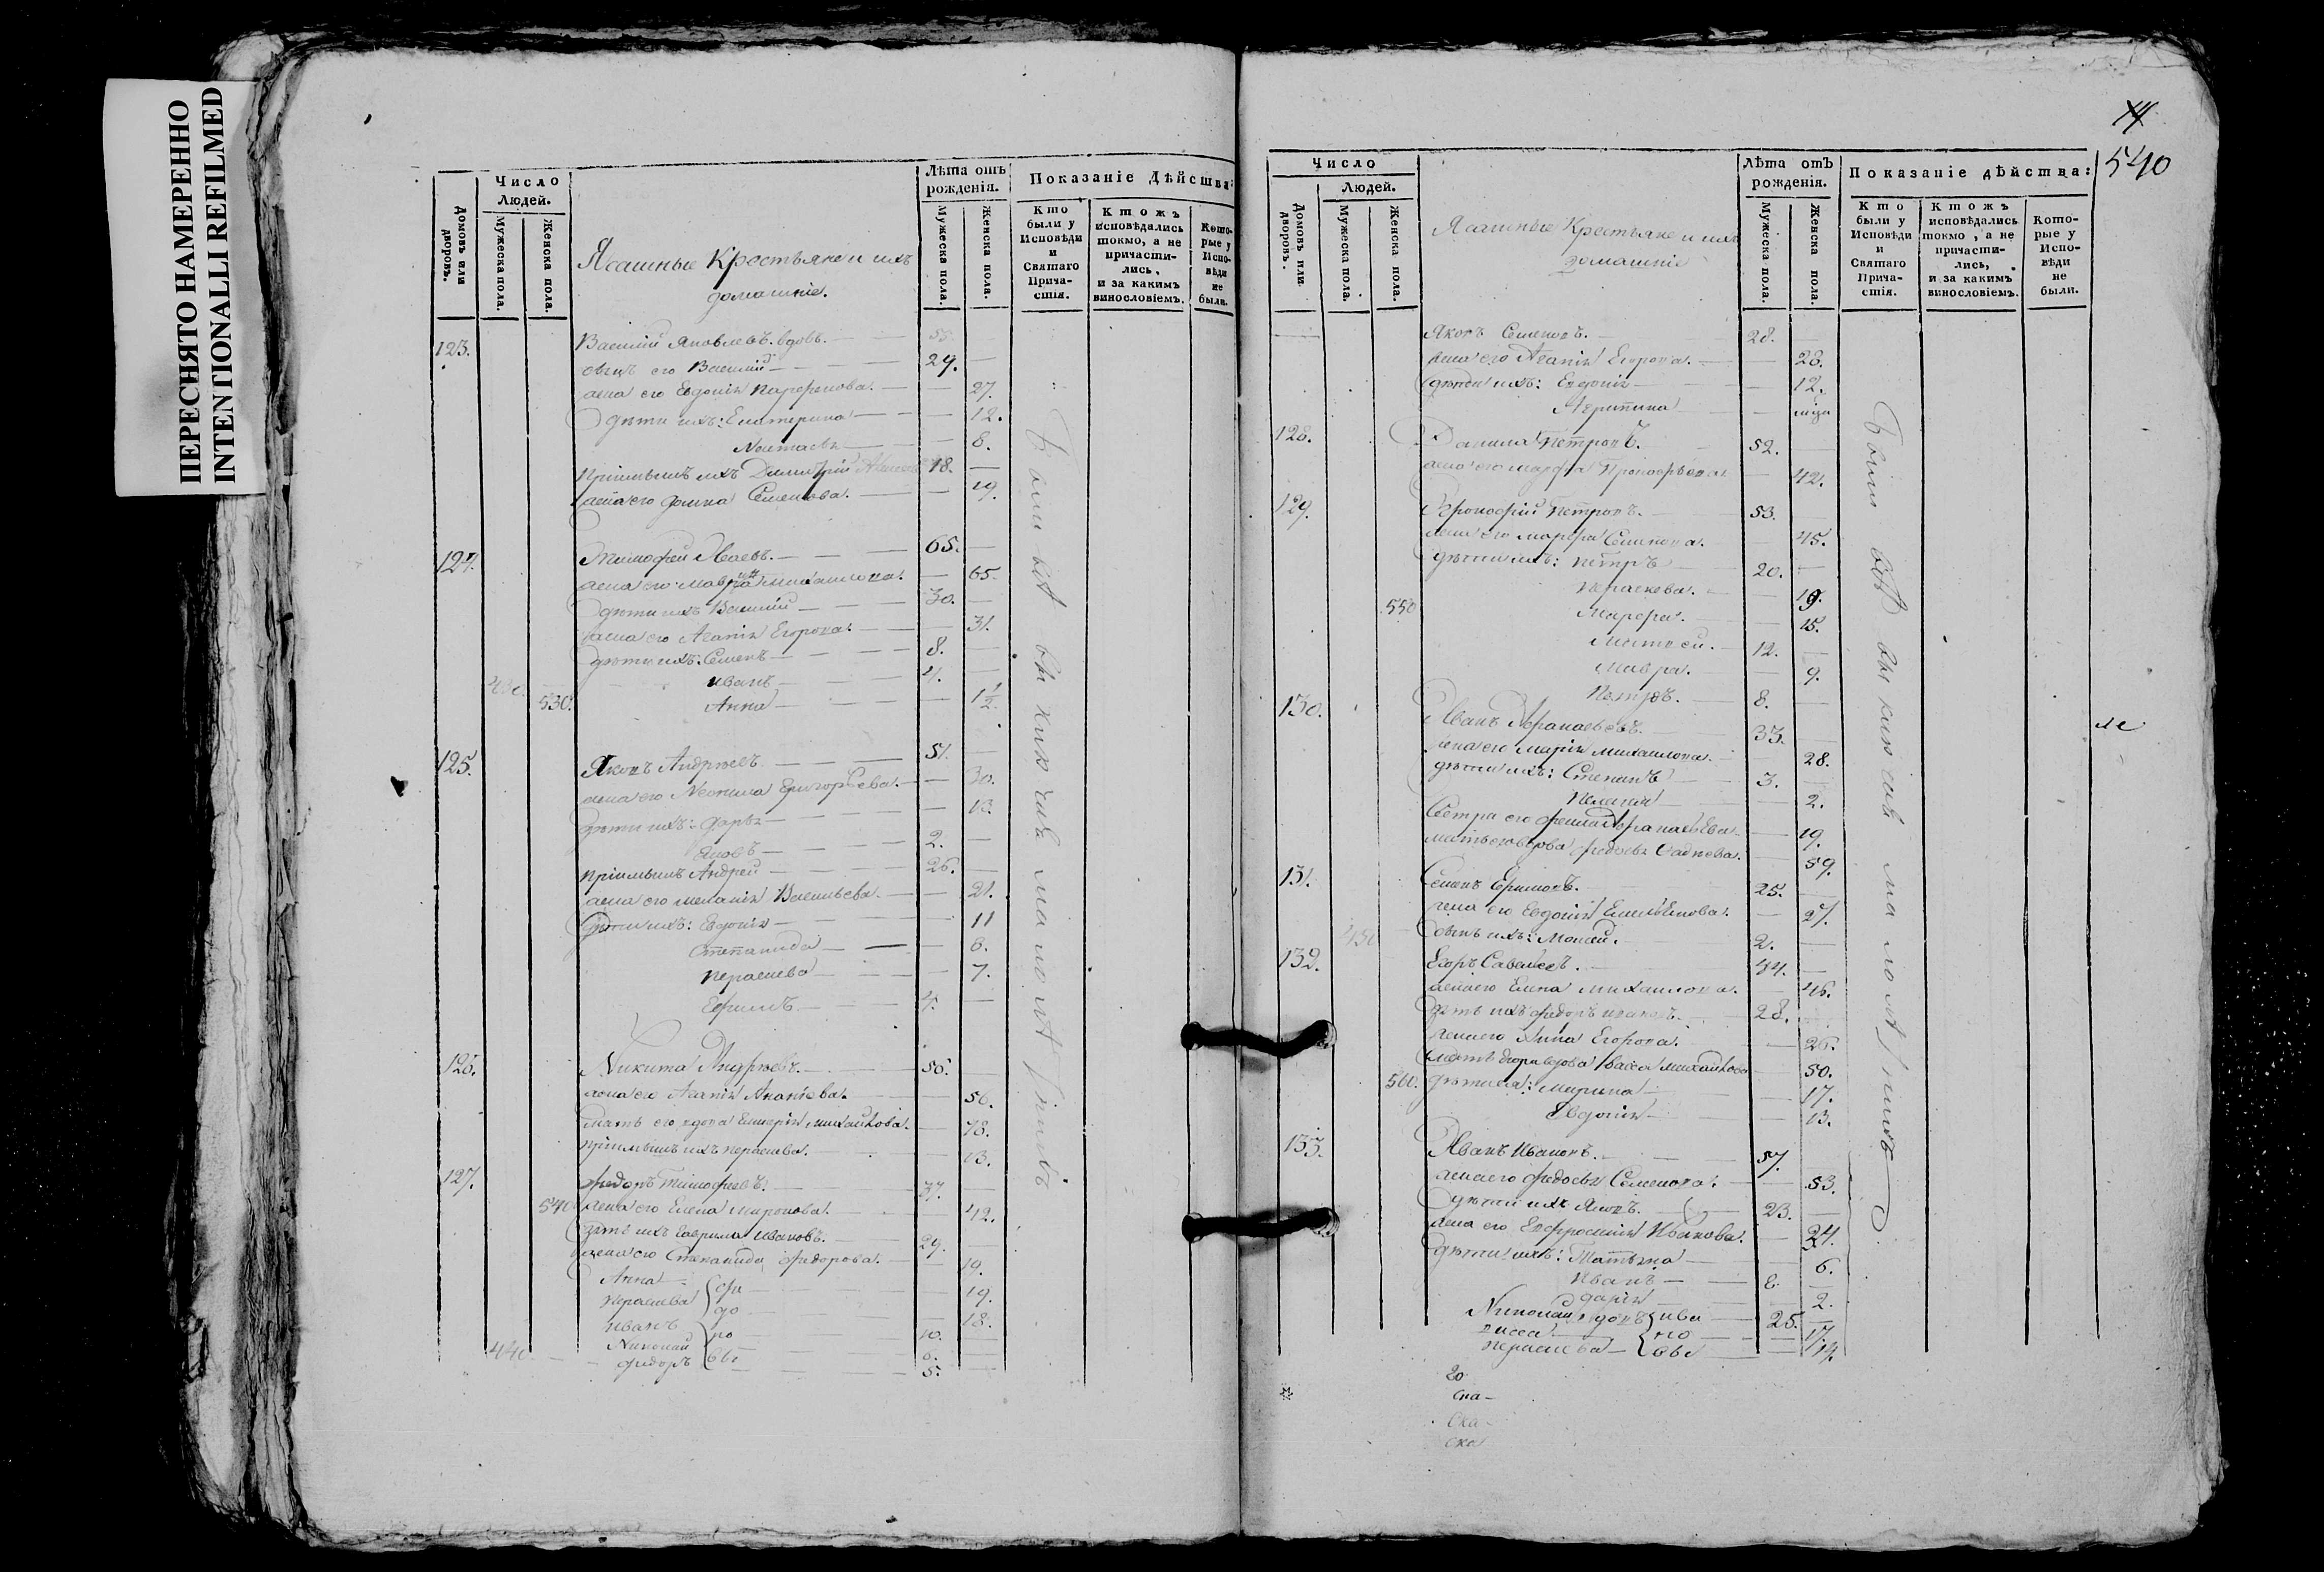 ПЕРЕСНЯТО НАМЕРЕННО
INTENTIONALLI REFILMED
Домовъ или дворовъ.
Число
Людей.
Мужеска пола.
Женска пола.
Ясашные Крестьяне и ихъ
домашніе.
Лѣта отъ
рожденія.
Мужеска пола.
Женска пола.
Показаніе Дѣйства:
Кто
были у
Исповѣди
и
Святаго
Прича-
стія.
Ктожъ
исповѣдались
токмо, а не
причасти-
лись,
и за какимъ
винословіемъ.
Кото-
рые у
Испо-
вѣди
не
были.
123. Василій Яковлевъ вдовъ. 55.
сынъ его Василій 29.
жена его Евдокія Парфенова. 27.
дѣти ихъ: Екатерина 12.
8.
Пріимышъ ихъ Димитрій 18.
жена его Семенова. 19.
124. Тимофей 65.
жена его Михаилова. 65.
дѣти ихъ Василій 30.
жена его Агапія Егорова. 31.
дѣти ихъ: Семенъ 8.
Иванъ 4.
430. 530. Анна 1½.
125. Яковъ Андреевъ 51.
жена его Неонила Григорьева. 30.
дѣти ихъ: Дарья 13.
Яковъ 2.
Пріимышъ Андрей 26.
жена его Меланія Васильева. 21.
дѣти ихъ: Евдокія 11
Степанида 8.
Параскева 7.
Ефимъ 4.
126. Никита Андреевъ. 56.
жена его Агапія Ананьева. 56.
мать его вдова Михаилова. 78.
Пріимышъ ихъ Параскева. 13.
127. Федоръ Тимофеевъ. 37.
540 жена его Елена Миронова. 42.
зять ихъ Гаврила Ивановъ. 29.
жена его Степанида Федорова. 19.
Анна 19.
Параскева 18.
Иванъ 10.
Николай
440. Федоръ 5.
Были всѣ
540
Число
Людей.
Домовъ или дворовъ.
Мужеска пола.
Женска пола.
Ясашные Крестьяне и ихъ
домашніе
Лѣта отъ
рожденія.
Мужеска пола.
Женска пола.
Показаніе дѣйства:
Кто
были у
Исповѣди
и
Святаго
Прича-
стія.
Ктожъ
исповѣдались
токмо, а не
причасти-
лись,
и за какимъ
винословіемъ.
Кото-
рые у
Испо-
вѣди
не
были.
Яковъ Семеновъ. 28.
жена его Агапія Егорова. 28.
дѣти ихъ: Евдокія 12.
128. Данила Петровъ. 52.
жена его Марфа Прокофьева. 42.
129. Прокофій Петровъ. 53.
жена его Марфа Семенова. 45.
дѣти ихъ: Петръ 20.
Параскева. 19.
550 Марфа. 15.
Матвей. 12.
Мавра. 9.
Петръ. 8.
130. Иванъ Афанасьевъ. 33.
жена его Марія Михаилова. 28.
дѣти ихъ: Степанъ 3.
Пелагія 2.
Сестра его Афанасьева 19.
мать его вдова Федосья 59.
131. Семенъ Ефимовъ. 25.
жена его Евдокія Емельянова. 27.
450 сынъ ихъ: Моисей. 2.
132. Егоръ Савельевъ. 44.
жена его Елена Михаилова. 46.
зять ихъ Федоръ Ивановъ. 28.
жена его Анна Егорова. 26.
вдова Васса Михаилова 50.
560. дѣти ея: Марина 17.
Евдокія 13.
133. Иванъ Ивановъ. 57.
жена его Федосья Семенова. 53.
дѣти ихъ Яковъ. 23.
жена его Евфросинія Иванова. 24.
дѣти ихъ: Татьяна 6.
Иванъ
Дарія 2.
Николай 25.
17.
Параскева
Были всѣ